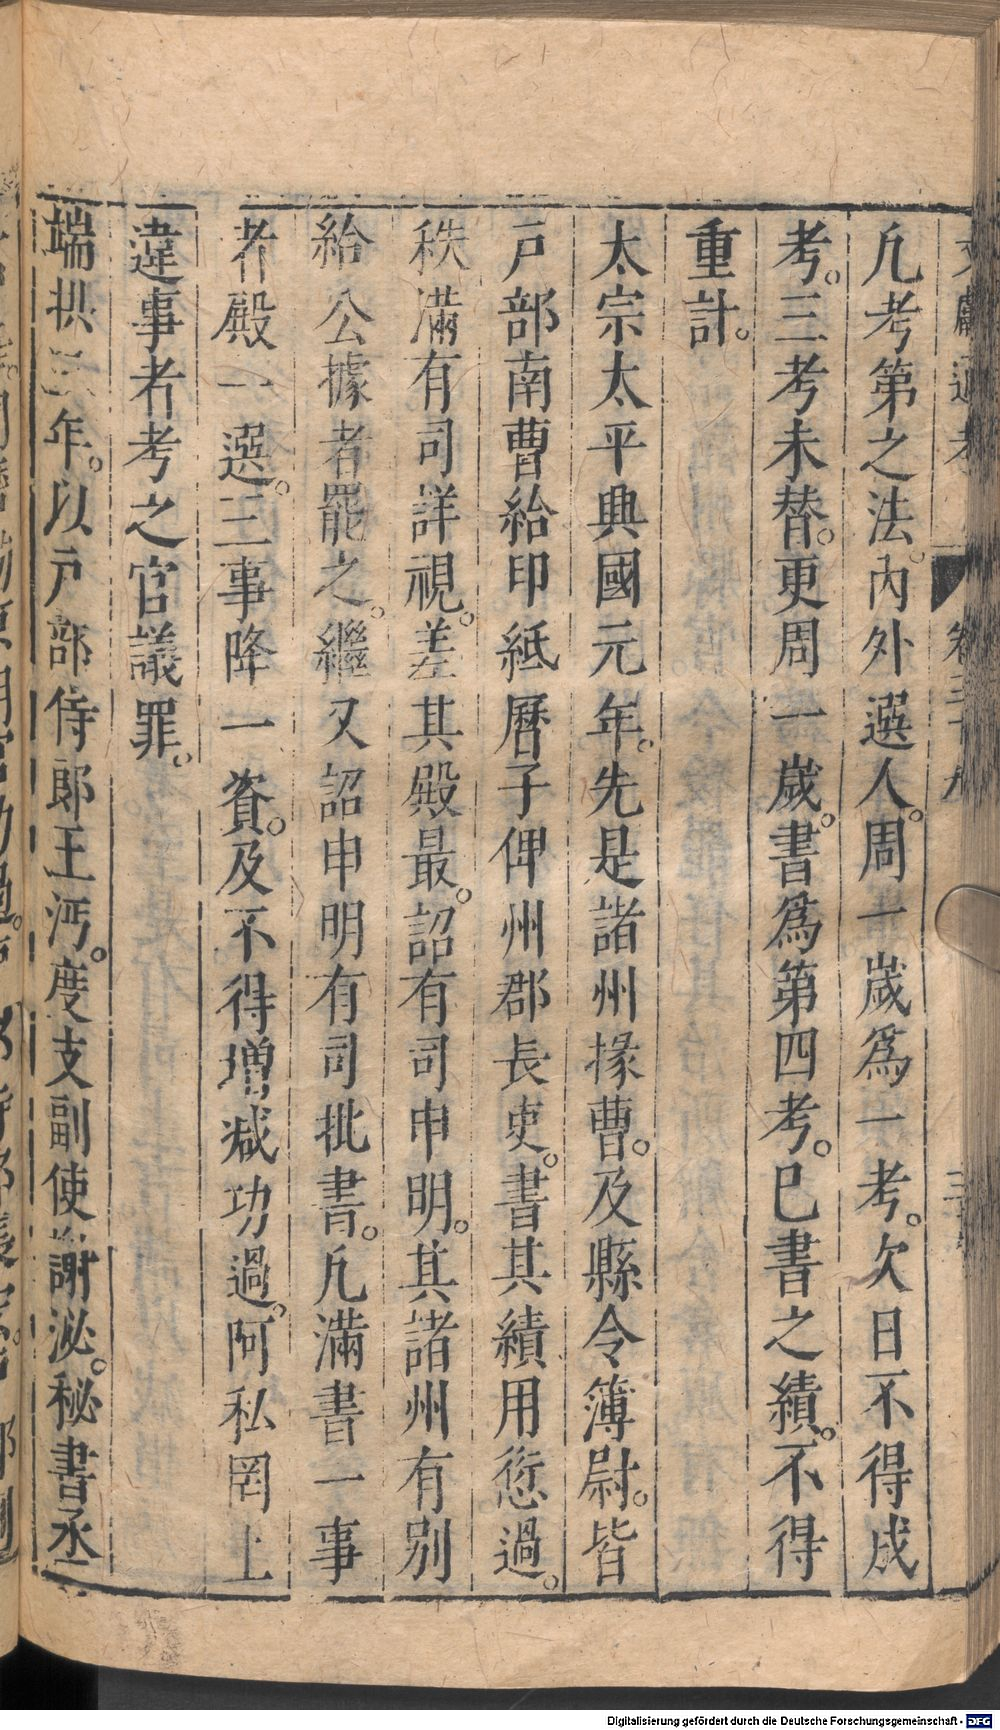 文獻通考 卷三十九
凡考第之法。內外選人。周一歲爲一考。欠日不得成
考。三考未替。更周一歲。書爲第四考。已書之績。不得
重計。
太宗太平興國元年。先是諸州掾曹。及縣令簿尉。皆
戸部南曹給印紙曆子俾州郡長吏。書其績用愆過。
秩滿有司詳視。差其殿最。詔有司申明。其諸州有別
給公據者罷之。繼又詔申明有司批書。凡滿書一事
者殿一選。三事降一資。及不得增減功過。阿私罔上
違事者考之官議罪。
端拱三年。以戸部侍郎王沔。度支副使謝泌。秘書丞
Digitalisierung gefördert durch die Deutsche Forschungsgemeinschaft - DFG